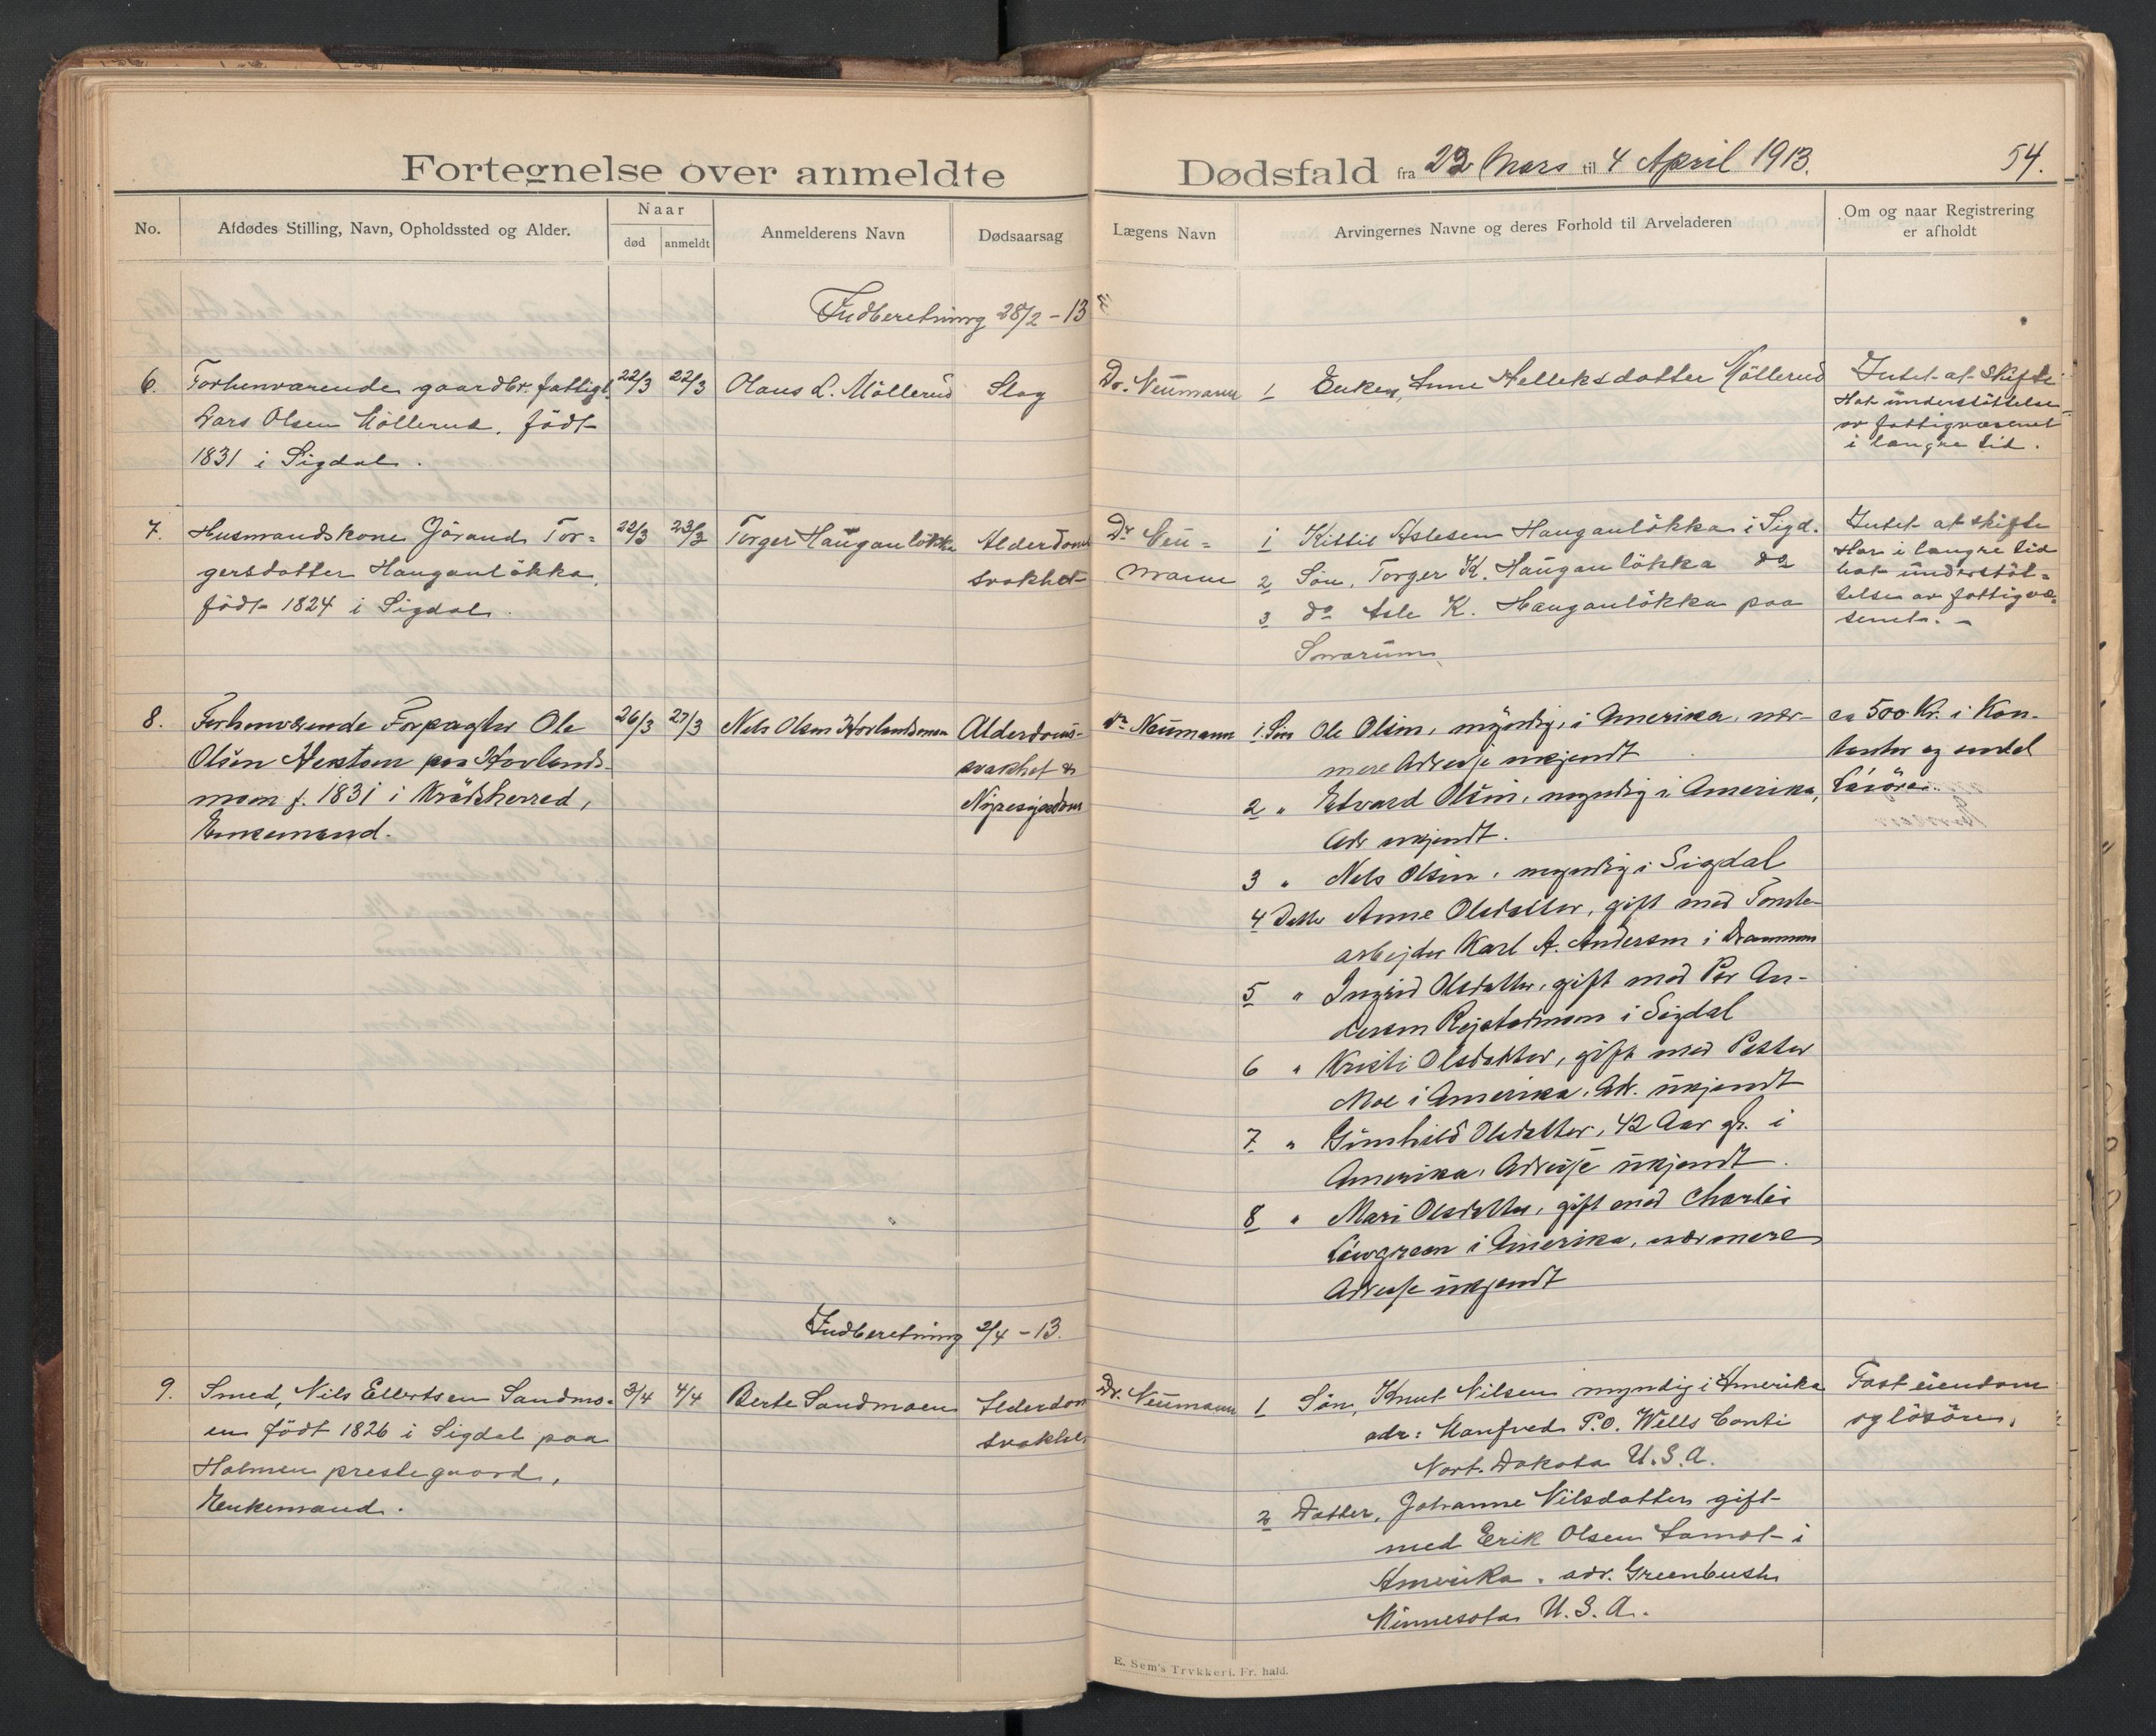 Fortegnelse over anmeldte Dødsfald fra 22 Mars til 4 April 1913. 54.
No.
Afdødes Stilling, Navn, Opholdssted og Alder.
Naar
død
anmeldt
Anmelderens Navn
Dødsaarsag
Lægens Navn
Arvingernes Navne og deres Forhold til Arveladeren
Om og naar Registrering
er afholdt
Indberetning 28/2 - 13
6.
Forhenvarende gaardbr. fattigl.
Lars Olsen Möllerud, födt
1831 i Sigdal.
22/3
22/3
Olaus L. Möllerud
Slag
Dr. Neumann
1 Enken, Anne Helleksdatter Möllerud
Intet at skifte
Hat understöttelse
av fattigvæsenet
i længre tid.
7.
Husmandskone Jörand Tor=
gersdatter Hauganlökka,
födt 1824 i Sigdal.
22/3
23/3
Torger Hauganlökka
Alderdoms
svakhet
Dr Neu=
mann
1 Kittil Aslesen Hauganlökka i Sigd.
2 Sön, Torger K. Hauganlökka do
3 do Asle K. Hauganlökka paa
Snarum
Intet at skifte
Har i længre tid
hat understöt=
telse av fattigvæ=
senet. -
8.
Forhenværende Forpagter Ole
Olsen paa Hovlands-
moen f. 1831 i Krödsherred,
Enkemand.
26/3
27/3
Nels Olsen Hovlandsmoen
Alderdoms-
svakhet &
Nyresygdom
Dr Neumann
1. Sön Ole Olsen, myndig, i Amerika, nær-
mere Adresse ukjendt
2 " Edvard Olsen, myndig i Amerika,
Adr ukjendt.
3 " Nels Olsen, myndig i Sigdal
4 Datter Anne Olsdatter, gift med Tomte-
arbejder Karl A. Andersen i Drammen
5 " Ingrid Olsdatter, gift med Per An-
dersen i Sigdal
6 " Kristi Olsdatter, gift med Petter
Moe i Amerika. Adr. ukjendt
7 " Gunhild Olsdatter, 42 Aar gl. i
Amerika. Adresse ukjendt.
8 " Mari Olsdatter, gift med Charlis
i Amerika, nærmere
Adresse ukjendt
ca 500 Kr. i Kon-
tanter og endel
Lösöre.
Indberetning 2/4 - 13.
9.
Smed, Nils Ellertsen Sandmo=
en födt 1826 i Sigdal paa
Holmen prestegaard,
Enkemand.
3/4
4/4
Berte Sandmoen
Alderdom
svakhet
Dr. Neumann
1 Sön, Knut Nilsen myndig i Amerika
adr: Manfred P.O. Wells Conti
Nort. Dakota U.S.A.
2 Datter, Johanne Nilsdatter gift
med Erik Olsen Lamot i
Amerika. adr. Greenbush
Minnesota U.S.A.
Fast eiendom
og lösöre.
E. Sem's Trykkeri. Fr. hald.